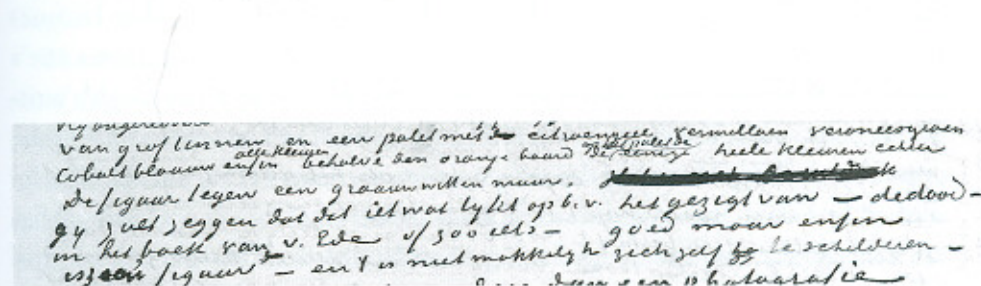 van grof linnen en een palet met citroengeel vermilloen veroneesgroen
cobalt blaauw enfin alle kleuren behalve den oranje baard op het palet de eenige heele kleuren echter
De figuur tegen een graauwwitten muur.
gy zult zeggen dat dit iets wat lykt op b.v. het gezigt van – de dood –
in het boek van v. Ede of zoo iets – goed maar enfin
is figuur – en t is niet makkelyk zich zelf te schilderen –
dan een photografie